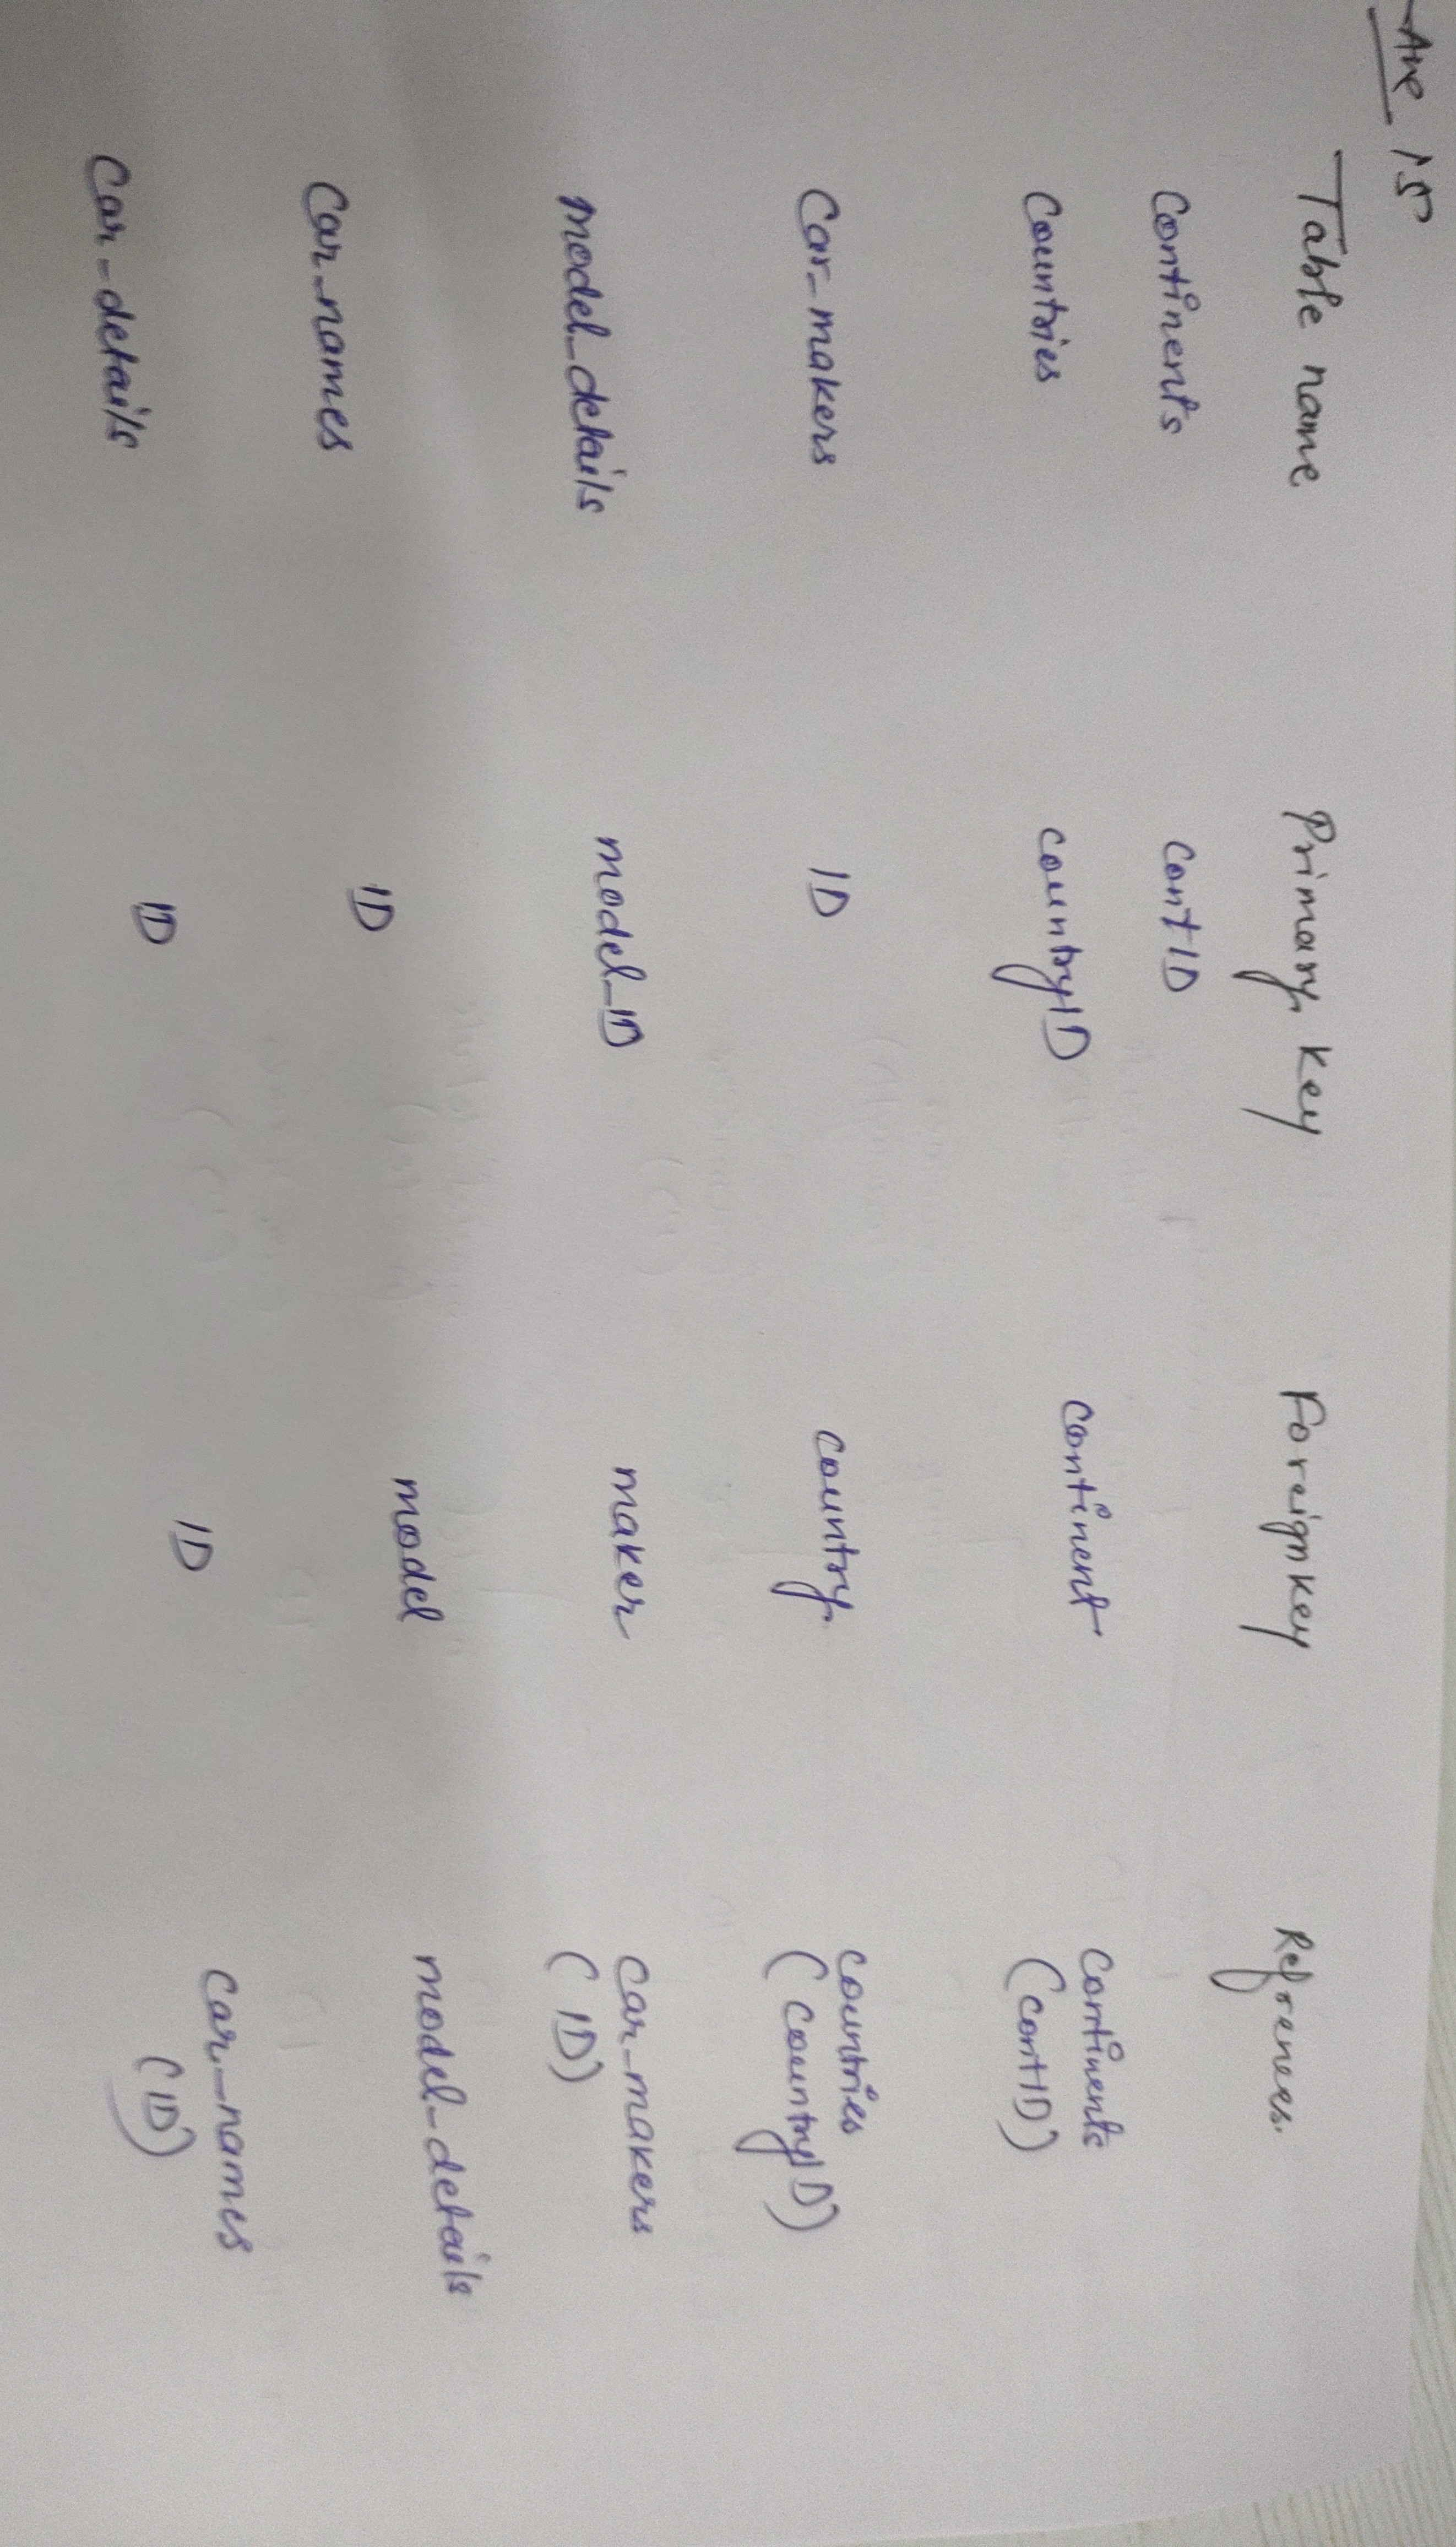 Ans 15
Table name Primary key Foreign key Refrences.
Continents ContID
Countries countryID continent Continents
(contID)
Car_makers ID country countries
(countryID)
model_details model_ID maker car_makers
(ID)
Car_names ID model model_details
Car_details ID ID Car_names
(ID)